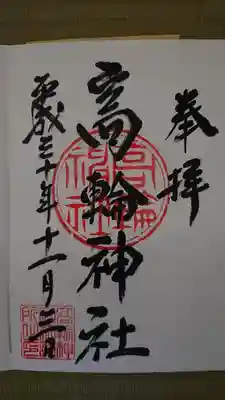 奉拝
高輪神社
平成三十年十一月三日
高輪神社